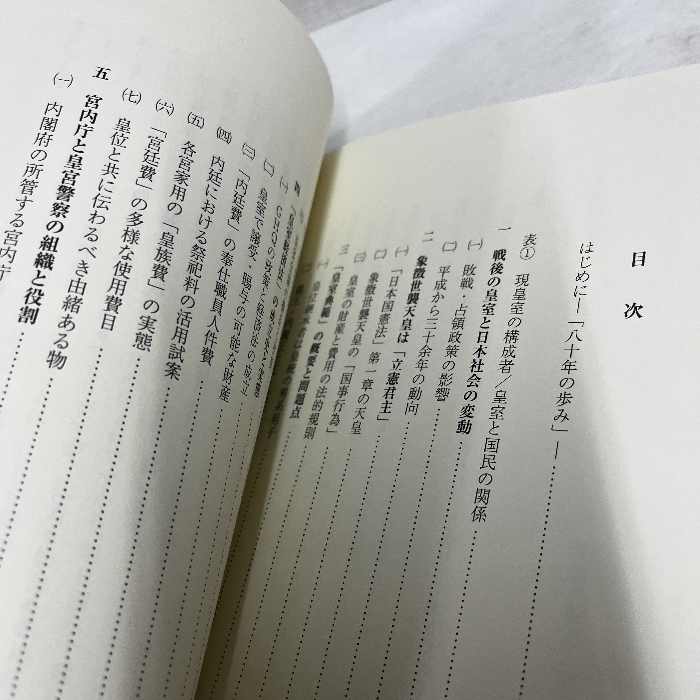 目次
はじめに―「八十年の歩み」―
表① 現皇室の構成者／皇室と国民の関係
一 戦後の皇室と日本社会の変動
㈠ 敗戦・占領政策の影響
㈡ 平成から三十余年の動向
二 象徴世襲天皇は「立憲君主」
㈠ 「日本国憲法」第一章の天皇
㈡ 象徴世襲天皇の「国事行為」
㈢ 皇室の財産と費用の法的規則
三 「皇室典範」の概要と問題点
四
㈠ GHQの
㈡ 皇室で譲受・賜与の可能な財産
㈢ 「内廷費」の奉仕職員人件費
㈣ 内廷における祭祀料の活用試案
㈤ 各宮家用の「皇族費」の実態
㈥ 「宮廷費」の多様な使用費目
㈦ 皇位と共に伝わるべき由緒ある物
五 宮内庁と皇宮警察の組織と役割
㈠ 内閣府の所管する宮内庁